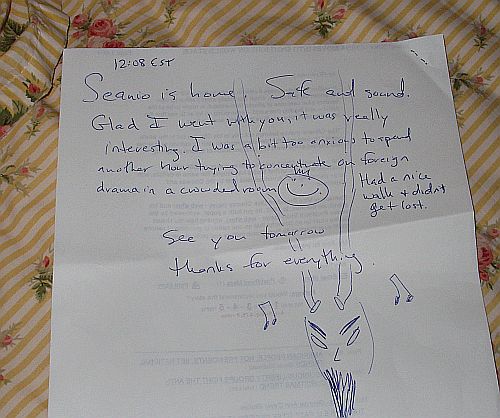 12:08 EST
Seanio is home Safe and sound.
Glad I went with you, it was really
interesting. I was a bit too anxious to spend
another hour trying to concentrate on foreign
drama in a crowded room
Had a nice
walk & didn't
get lost.
See you tomorrow
thanks for everything.